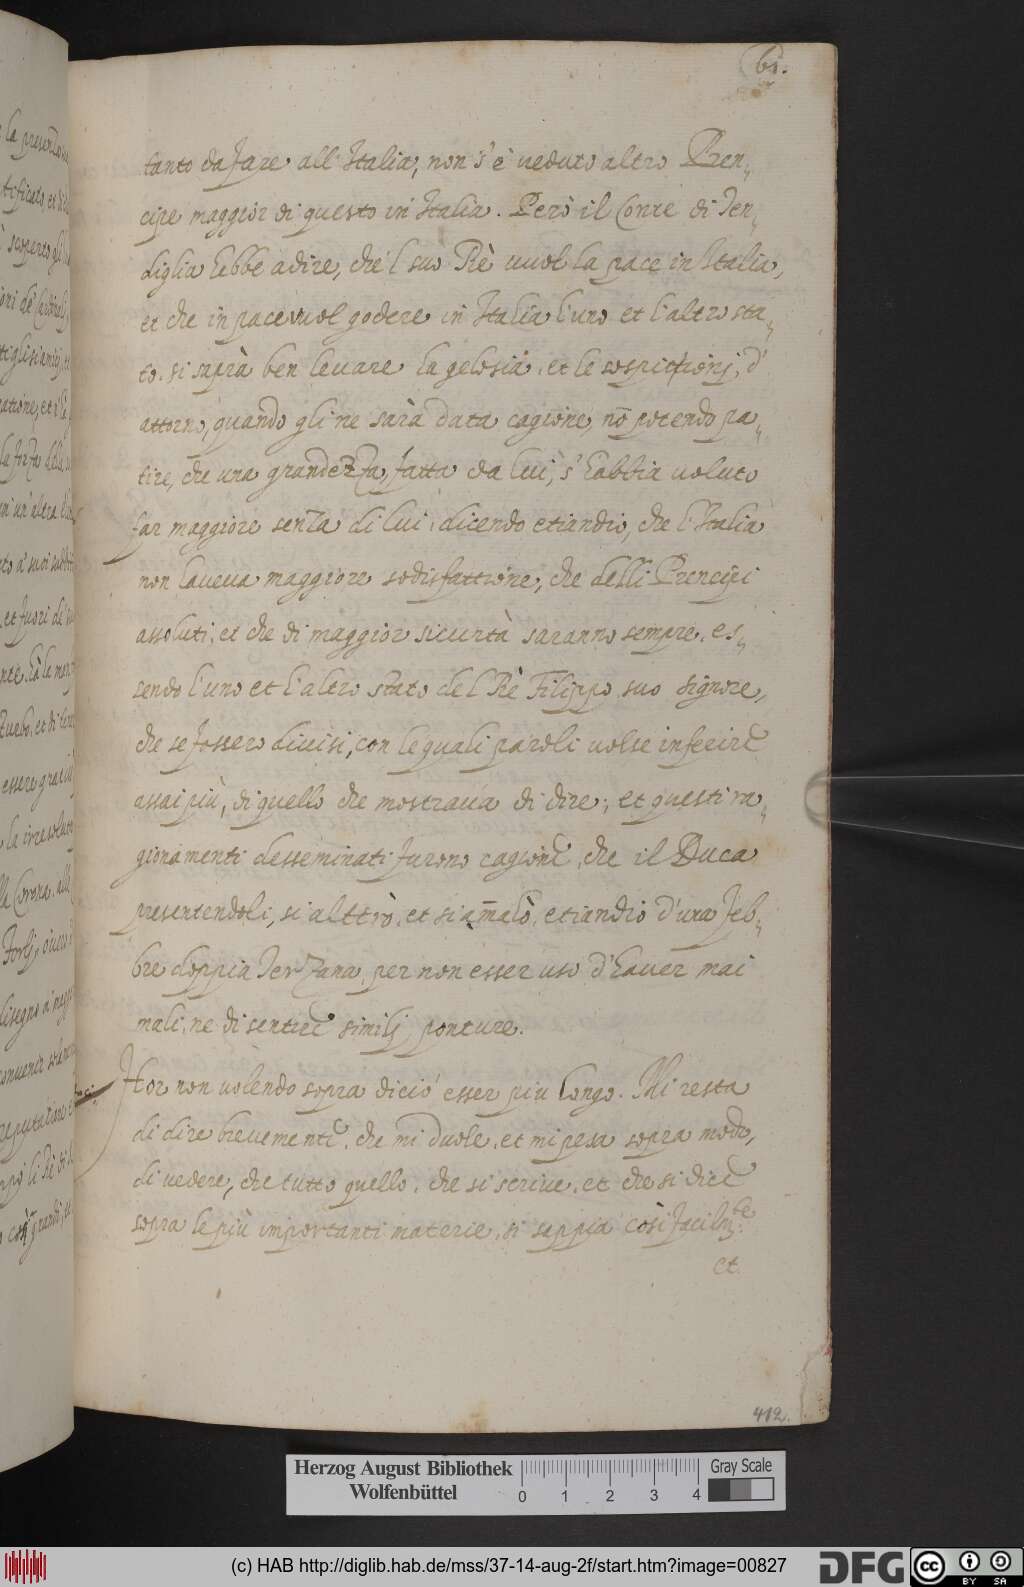 61.
tanto da fare all'Italia, non s'è ueduto altro Pren-
cipe maggior di questo in Italia. Però il Conte di Ten-
diglia hebbe a dire, che 'l suo Rè uuol la pace in Italia,
et che in pace uuol godere in Italia l'uno et l'altro sta-
to. si saprà ben leuare la gelosia, et le sospittionj, d'
attorno, quando gli ne sarà data cagione, nõ potendo pa-
tire, che una grandezza, fatta da lui, s'habbia uoluto
far maggiore senza di lui; dicendo etiandio, che l'Italia
non haueua maggiore sodisfattione, che delli Prencipi
assoluti, et che di maggior sicurtà saranno sempre, es-
sendo l'uno et l'altro stato del Rè Filippo suo signore,
che se fossero diuisi, con le quali paroli uolse inferire
assai più, di quello che mostraua di dire; et questi ra-
gionamenti desseminati furono cagione, che il Duca
presentendoli, si alterò, et si am̃alò, etiandio d'una feb-
bre doppia Terzana, per non esser uso d'hauer mai
mali, ne di sentire similj ponture.
Hor non uolendo sopra di ciò esser piu longo. Mi resta
di dire breuemente, che mi duole, et mi pesa sopra modo,
di uedere, che tutto quello, che si scriue, et che si dice
sopra le più importanti materie, si sappia così facilm.te
et.
412.
la presen
scoperto gli
Herzog August Bibliothek
Wolfenbüttel
0 1 2 3 4
Gray Scale
(c) HAB http://diglib.hab.de/mss/37-14-aug-2f/start.htm?image=00827
DFG
cc BY SA